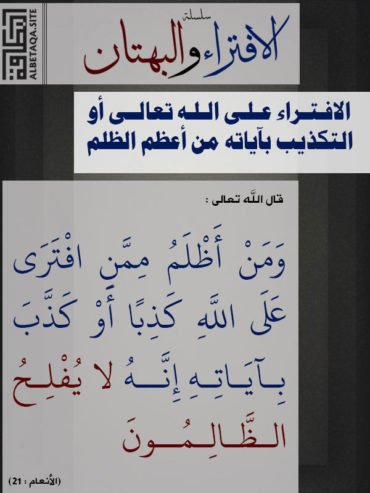 سلسلة
الافتراء والبهتان
البطاقة
ALBETAQA.SITE
الافتراء على الله تعالى أو
التكذيب بآياته من أعظم الظلم
قال الله تعالى :
وَمَنْ أَظْلَمُ مِمَّنِ افْتَرَى
عَلَى اللَّهِ كَذِبًا أَوْ كَذَّبَ
بِآيَاتِهِ إِنَّهُ لا يُفْلِحُ
الظَّالِمُونَ
(الأنعام : 21)